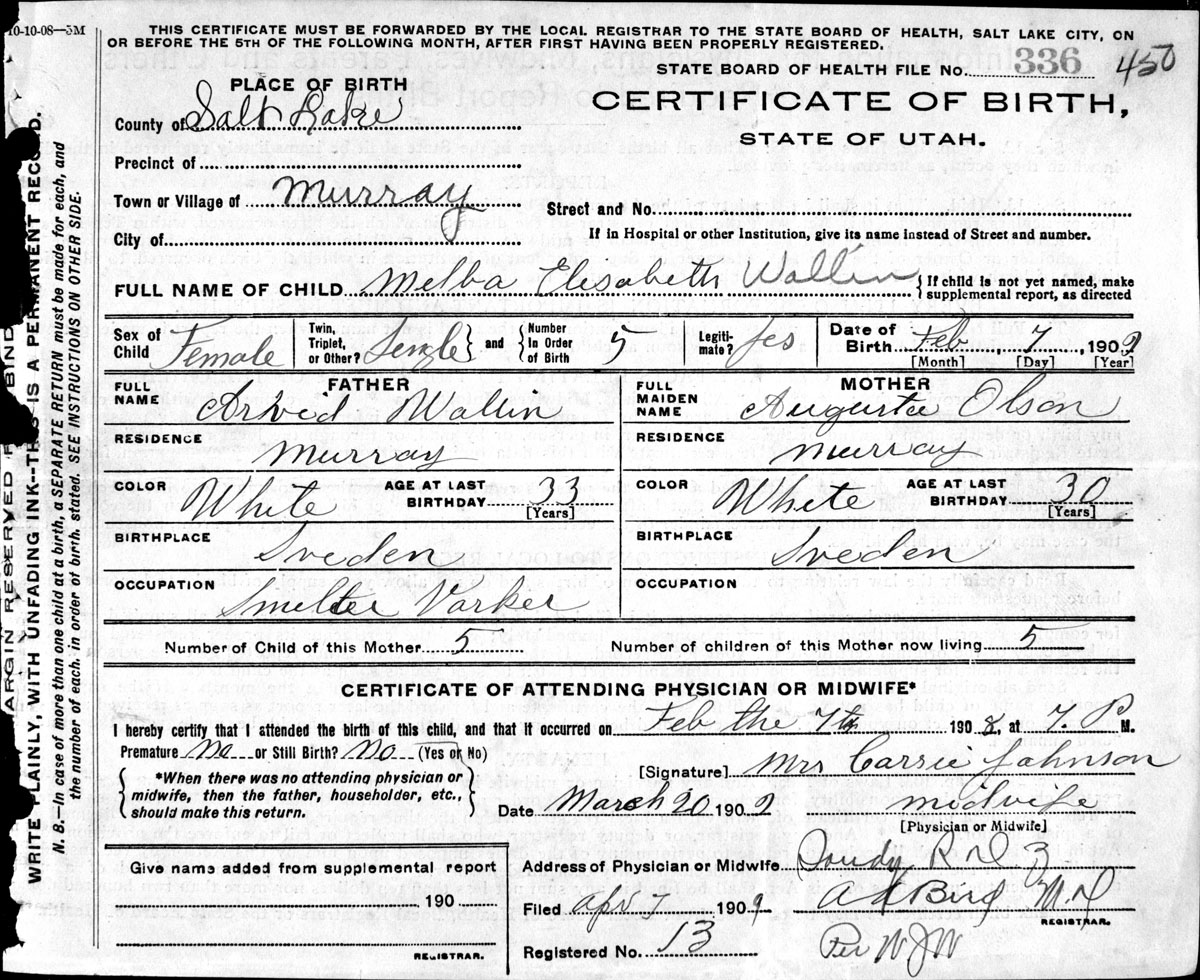 10-10-08—5M
THIS CERTIFICATE MUST BE FORWARDED BY THE LOCAL REGISTRAR TO THE STATE BOARD OF HEALTH, SALT LAKE CITY, ON
OR BEFORE THE 5TH OF THE FOLLOWING MONTH, AFTER FIRST HAVING BEEN PROPERLY REGISTERED.
STATE BOARD OF HEALTH FILE No. 336 450
PLACE OF BIRTH
CERTIFICATE OF BIRTH,
STATE OF UTAH.
County of Salt Lake
Precinct of
Town or Village of Murray
Street and No.
City of
If in Hospital or other Institution, give its name instead of Street and number.
FULL NAME OF CHILD Melba Elesabeth Wallin { If child is not yet named, make
supplemental report, as directed
Sex of Child Female
Twin, Triplet, or Other? Sengle } and { Number In Order of Birth 5
Legiti- mate? Jes
Date of Birth Feb 7 1909
[Month] [Day] [Year]
FATHER
FULL NAME Arvid Wallin
RESIDENCE Murray
COLOR White AGE AT LAST BIRTHDAY 33
[Years]
BIRTHPLACE Sveden
OCCUPATION Smelter Varker
MOTHER
FULL MAIDEN NAME Augusta Olson
RESIDENCE Murray
COLOR White AGE AT LAST BIRTHDAY 30
[Years]
BIRTHPLACE Sveden
OCCUPATION
Number of Child of this Mother 5 Number of children of this Mother now living 5
CERTIFICATE OF ATTENDING PHYSICIAN OR MIDWIFE*
I hereby certify that I attended the birth of this child, and that it occurred on Feb the 7th 1908, at 7 P M.
Premature no or Still Birth? no (Yes or No)
{ *When there was no attending physician or
midwife, then the father, householder, etc.,
should make this return. }
[Signature] Mrs Carrie Johnson
Date March 20 1909 midvife
[Physician or Midwife]
Give name added from supplemental report
190
REGISTRAR.
Address of Physician or Midwife Sandy R D 3
Filed Apr 1 1909 A A Bird M.D
REGISTRAR.
Registered No. 13 Per W J W
ARGIN RESERVED F BIND
WRITE PLAINLY, WITH UNFADING INK--THIS IS A PERMANENT RECORD.
N. B.—In case of more than one child at a birth, a SEPARATE RETURN must be made for each, and
the number of each, in order of birth, stated. SEE INSTRUCTIONS ON OTHER SIDE.